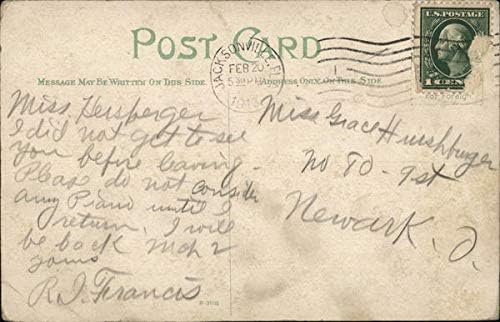 POST CARD
MESSAGE MAY BE WRITTEN ON THIS SIDE
ADDRESS ONLY ON THIS SIDE.
JACKSONVILLE, F
FEB 20
5 30 PM
1913
U.S. POSTAGE
1 CENT
For Foreign
Miss Hersperger
I did not get to see
you before leaving -
Please do not consider
any Piano until I
return. I will
be back Mch 2
yours
R. J. Francis
Miss Grace Hirshburger
No 80 - 9st
Newark, O.